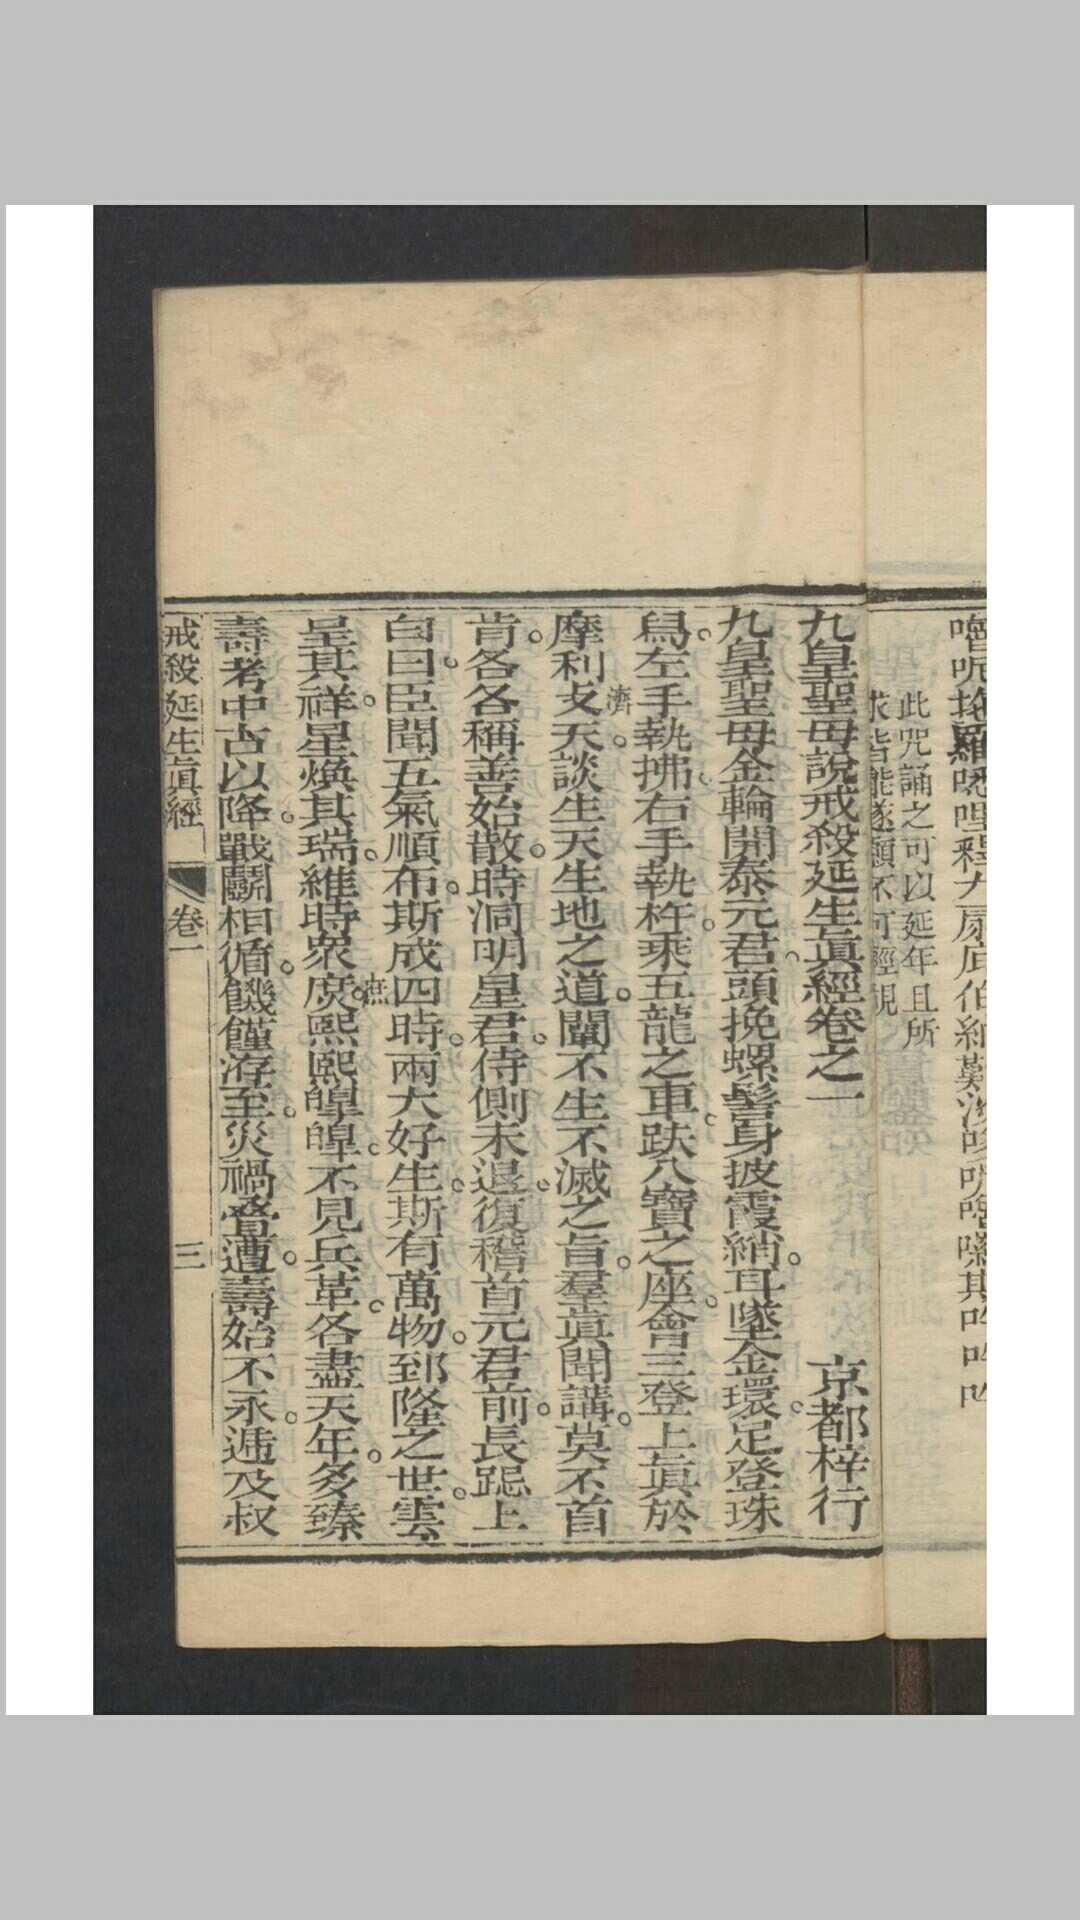 此咒誦之可以延年且所
求皆能遂願不可輕視
九皇聖母說戒殺延生眞經卷之一　京都梓行
九皇聖母金輪開泰元君。頭挽螺髻身披霞綃。耳墜金環。足登珠
舄。左手執拂。右手執杵。乘五龍之車。趺八寶之座。會三登上眞於
摩利支天。談生天生地之道。闡不生不滅之旨。羣眞聞講。莫不首
肯。各各稱善始散。時洞明星君。侍側未退。復稽首元君前。長跽上
白曰。臣聞五氣順布。斯成四時。兩大好生。斯有萬物。郅隆之世。雲
呈其祥。星煥其瑞。維時衆庶。熙熙皥皥。不見兵革。各盡天年。多臻
壽考中古以降。戰鬬相循。饑饉洊至。災禍沓遭。壽始不永。逓及叔
濟
庶
戒殺延生眞經
卷一
三